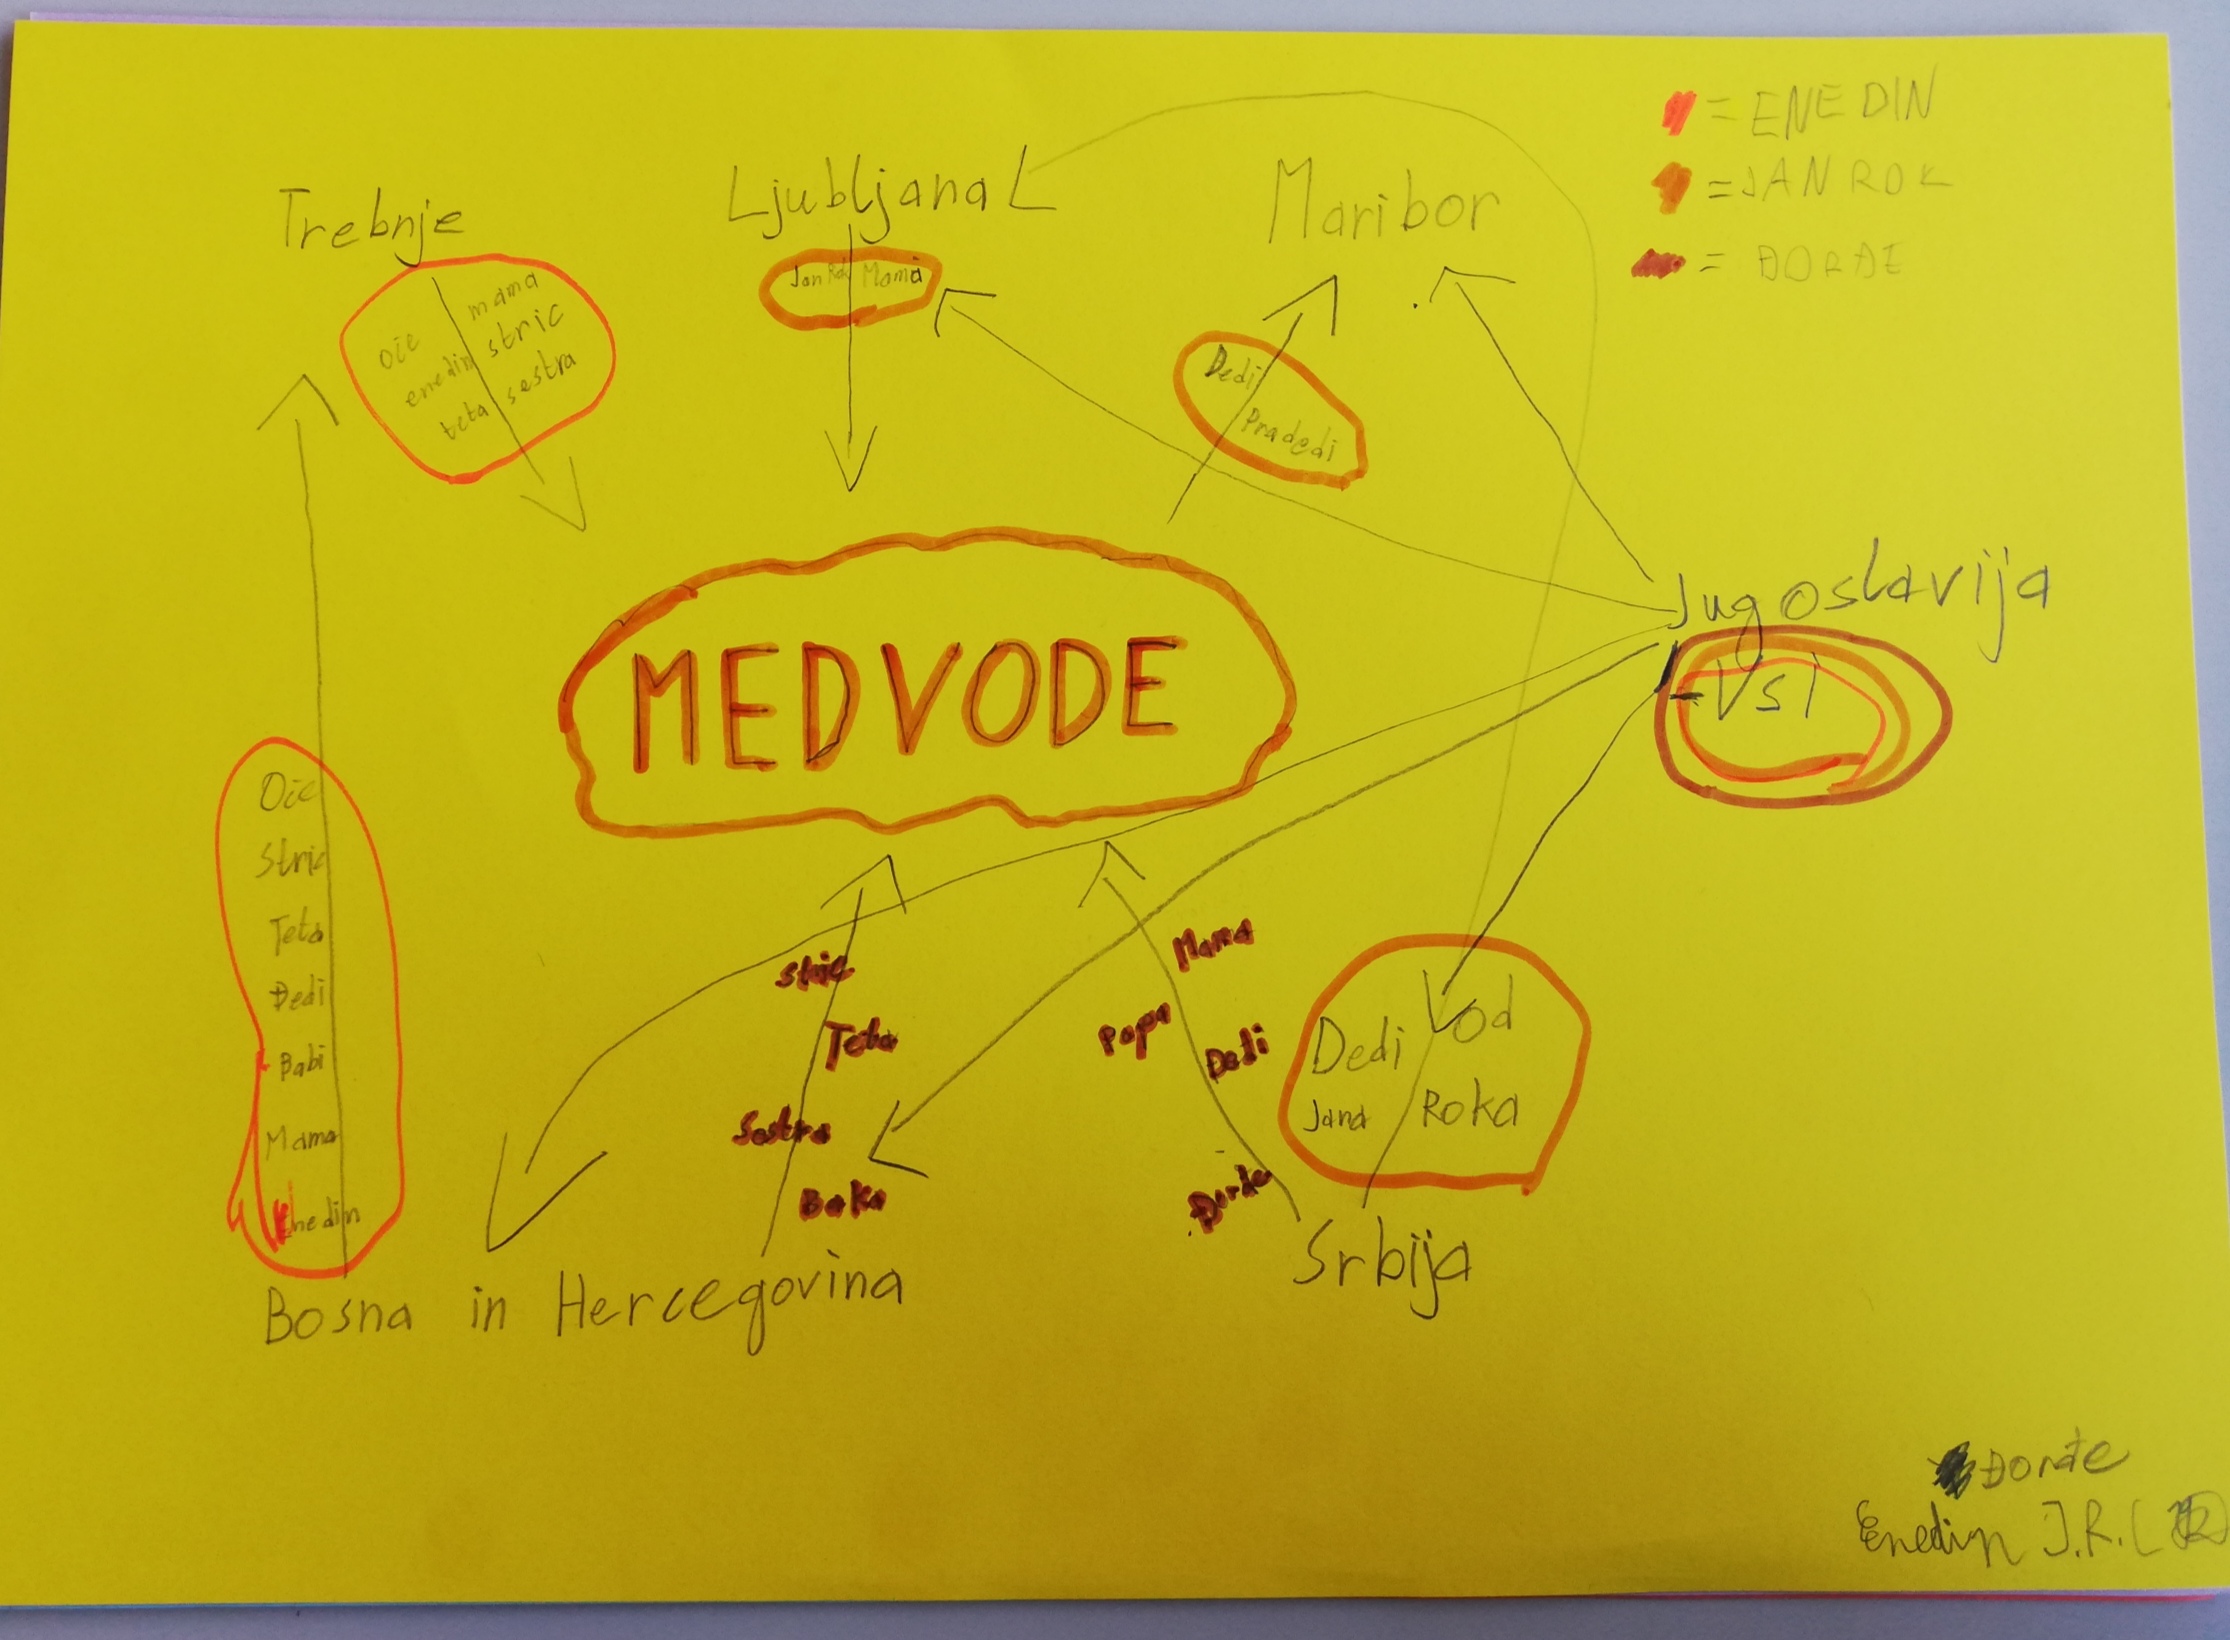 = ENEDIN
= JAN ROK
= ĐORĐE
Trebnje
Ljubljana
Maribor
Oče
enedin
teta
mama
stric
sestra
Jan Rok
Mama
Dedi
Pradedi
MEDVODE
Jugoslavija
- Vsi
Oče
Stric
Teta
Dedi
Babi
Mama
Enedin
Stric
Teta
Sestra
Baka
Mama
Papa
Dedi
Đorđe
Dedi od
Jana Roka
Bosna in Hercegovina
Srbija
Đorđe
Enedin J.R.L